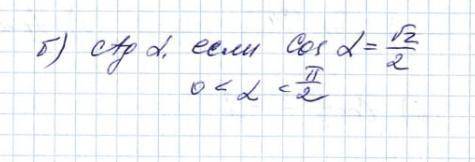 б) ctg α, если cos α = √2/2
0 < α < π/2